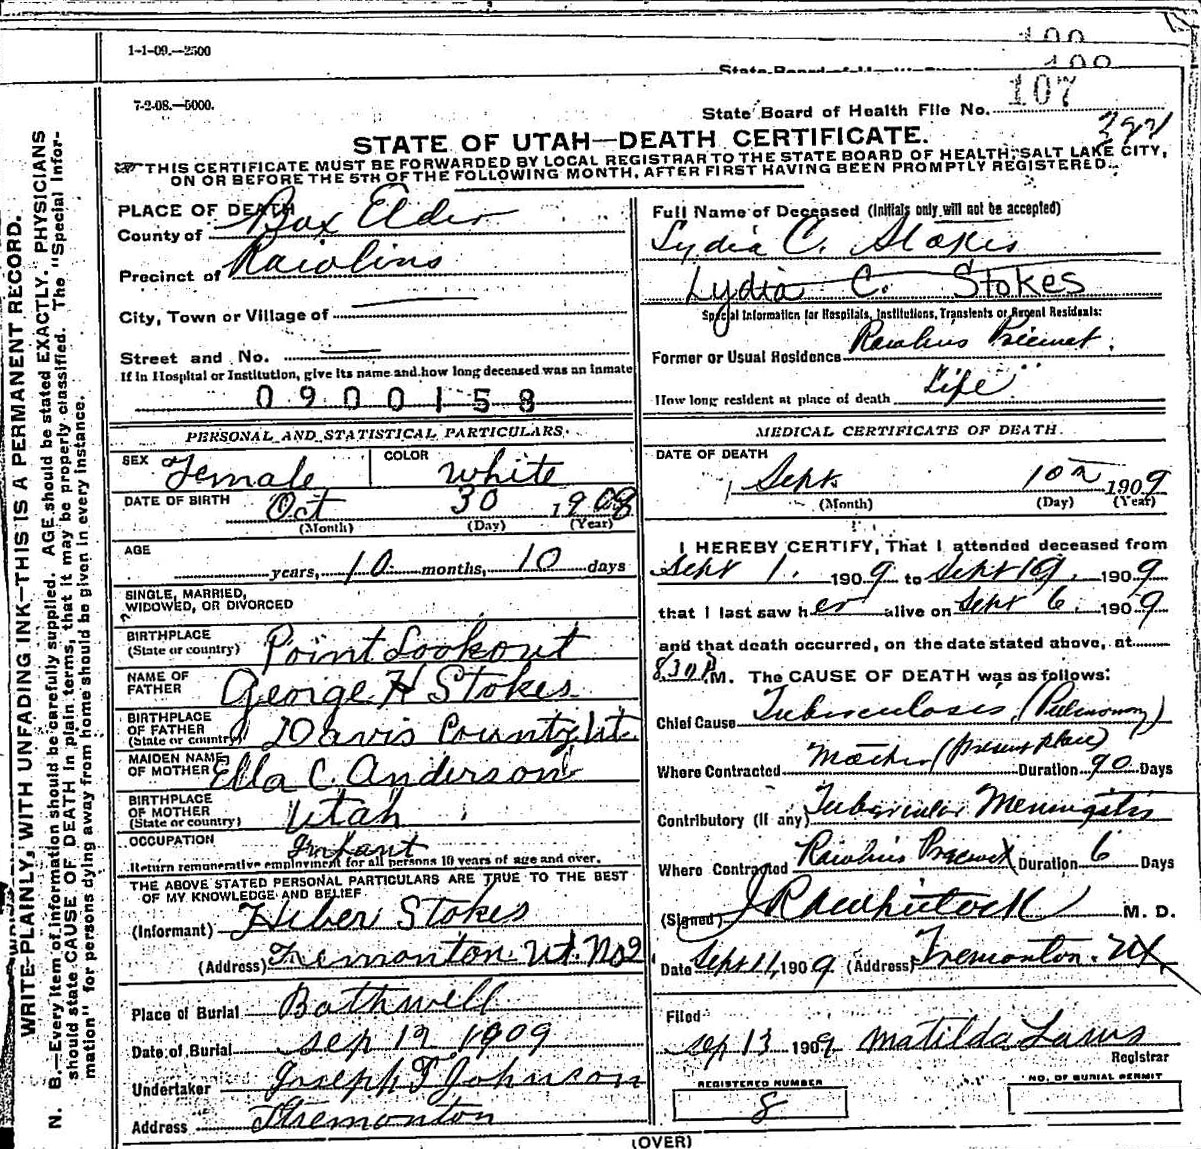 1-1-09.—2500
100
State Board of Health File No.
108
7-2-08.—5000.
State Board of Health File No. 107
STATE OF UTAH—DEATH CERTIFICATE.
THIS CERTIFICATE MUST BE FORWARDED BY LOCAL REGISTRAR TO THE STATE BOARD OF HEALTH, SALT LAKE CITY,
ON OR BEFORE THE 5TH OF THE FOLLOWING MONTH, AFTER FIRST HAVING BEEN PROMPTLY REGISTERED.
WRITE PLAINLY, WITH UNFADING INK—THIS IS A PERMANENT RECORD.
N. B.—Every item of information should be carefully supplied. AGE should be stated EXACTLY. PHYSICIANS
should state CAUSE OF DEATH in plain terms, that it may be properly classified. The "Special Infor-
mation" for persons dying away from home should be given in every instance.
PLACE OF DEATH
County of Box Elder
Precinct of Rawlins
City, Town or Village of
Street and No.
If in Hospital or Institution, give its name and how long deceased was an inmate
0900158
PERSONAL AND STATISTICAL PARTICULARS.
SEX Female COLOR White
DATE OF BIRTH Oct 30 1908
(Month) (Day) (Year)
AGE
years, 10 months, 10 days
SINGLE, MARRIED,
WIDOWED, OR DIVORCED
BIRTHPLACE
(State or country) Point Lookout
NAME OF
FATHER George H Stokes
BIRTHPLACE
OF FATHER
(State or country) Davis County Ut.
MAIDEN NAME
OF MOTHER Ella C. Anderson
BIRTHPLACE
OF MOTHER
(State or country) Utah
OCCUPATION Infant
Return remunerative employment for all persons 10 years of age and over.
THE ABOVE STATED PERSONAL PARTICULARS ARE TRUE TO THE BEST
OF MY KNOWLEDGE AND BELIEF
(Informant) Heber Stokes
(Address) Tremonton Ut. No 2
Place of Burial Bothwell
Date of Burial sep 12 1909
Undertaker Joseph T Johnson
Address Tremonton
Full Name of Deceased (Initials only will not be accepted)
Lydia C. Stokes
Lydia C. Stokes
Special Information for Hospitals, Institutions, Transients or Recent Residents:
Former or Usual Residence Rawlins Precinct.
How long resident at place of death Life
MEDICAL CERTIFICATE OF DEATH.
DATE OF DEATH
Sept. 10 1909
(Month) (Day) (Year)
I HEREBY CERTIFY, That I attended deceased from
Sept 1. 1909 to Sept 1909
that I last saw her alive on Sept 6. 1909
and that death occurred, on the date stated above, at
8.30 P. M. The CAUSE OF DEATH was as follows:
Chief Cause Tuberculosis (Pulmonary)
Where Contracted Mother (Present place) Duration 90 Days
Contributory (if any) Tubercular Meningitis
Where Contracted Rawlins Precinct Duration 6 Days
(Signed) M. D.
Date Sept 11, 1909 (Address) Tremonton. Ut
Filed
sep 13 1909 Matilda Laws
Registrar
REGISTERED NUMBER
8
NO. OF BURIAL PERMIT
(OVER)